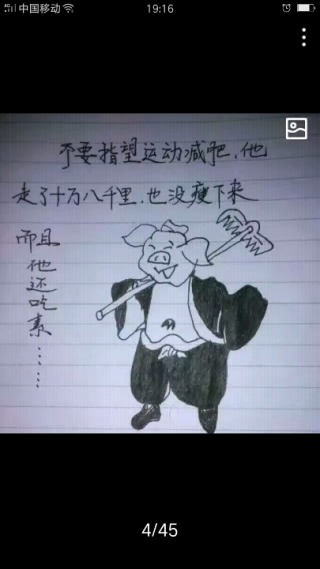 中国移动
19:16
不要指望运动减肥,他
走了十万八千里,也没瘦下来
而且他还吃素……
4/45